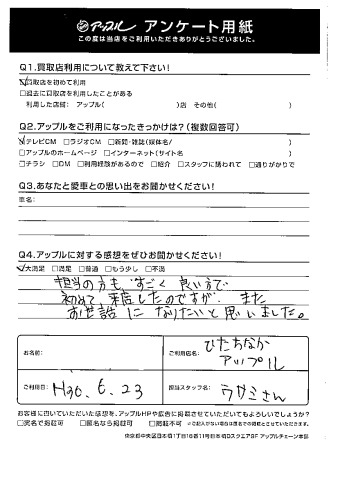 アップル アンケート用紙
この度は当店をご利用いただきありがとうございました。
Q1.買取店利用について教えて下さい!
☑買取店を初めて利用
□過去に買取店を利用したことがある
利用した店頭: アップル( )店 その他( )
Q2.アップルをご利用になったきっかけは?(複数回答可)
☑テレビCM □ラジオCM □新聞・雑誌(媒体名 )
□アップルのホームページ □インターネット(サイト名 )
□チラシ □DM □利用経験があるので □紹介 □スタッフに誘われて □通りがかりで
Q3.あなたと愛車との思い出をお聞かせください!
車名:
Q4.アップルに対する感想をぜひお聞かせください!
☑大満足 □満足 □普通 □もう少し □不満
担当の方も すごく 良い方で
初めて 来店したのですが、また
お世話に なりたいと思いました。
お名前:
ご利用店名: ひたちなか
アップル
ご利用日: H30. 6. 23
担当スタッフ名: ウサミさん
お客様に書いていただいた感想を、アップルHPや広告に掲載させていただいてもよろしいでしょうか?
□実名で掲載可 □匿名なら掲載可 □掲載不可 ※ご記入がない場合は匿名での掲載に同意したものとします。
東京都中央区日本橋1丁目16番11号日本橋Dスクエア8F アップルチェーン本部